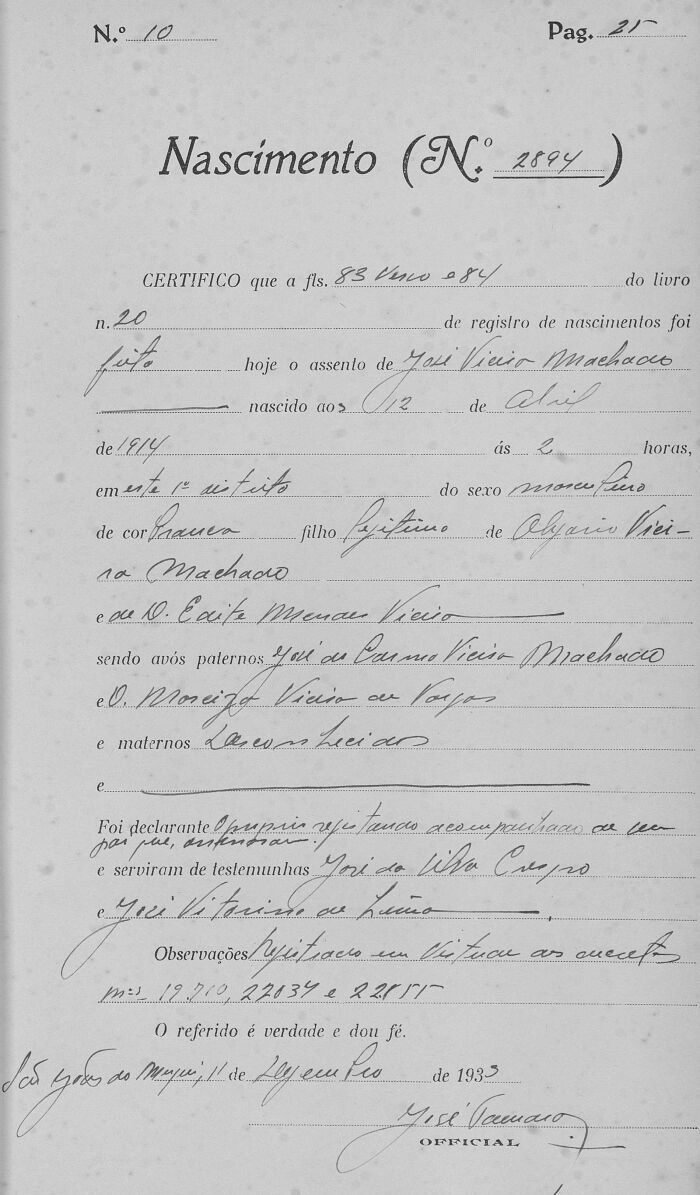 N.º 10 Pag. 25
Nascimento (N.º 2894)
CERTIFICO que a fls. 83 Verso e 84 do livro
n. 20 de registro de nascimentos foi
feito hoje o assento de José Vieira Machado
nascido aos 12 de Abril
de 1914 ás 2 horas,
em este 1º districto do sexo masculino
de cor branca filho legitimo de Olgario Viei-
ra Machado
e de D. Edite Mendes Vieira
sendo avós paternos José do Carmo Vieira Machado
e D. Vieira de Vargas
e maternos Desconhecidos
e
Foi declarante O proprio registando acompanhado de seu
pai que,
e serviram de testemunhas José da Silva Crespo
e José Vitorino de Lima.
Observações Registrado em Virtude dos decretos
nºs 19.710, 22037 e
O referido é verdade e dou fé.
São João do Muqui, 11 de Dezembro de 1933
José
OFFICIAL